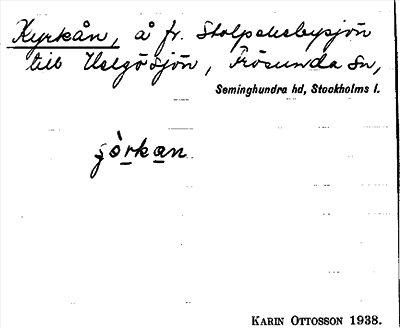 Kyrkån, å fr. Stolpskebysjön
till Helgösjön, Frösunda sn,
Seminghundra hd, Stockholms l.
çòrkan
KARIN OTTOSSON 1938.